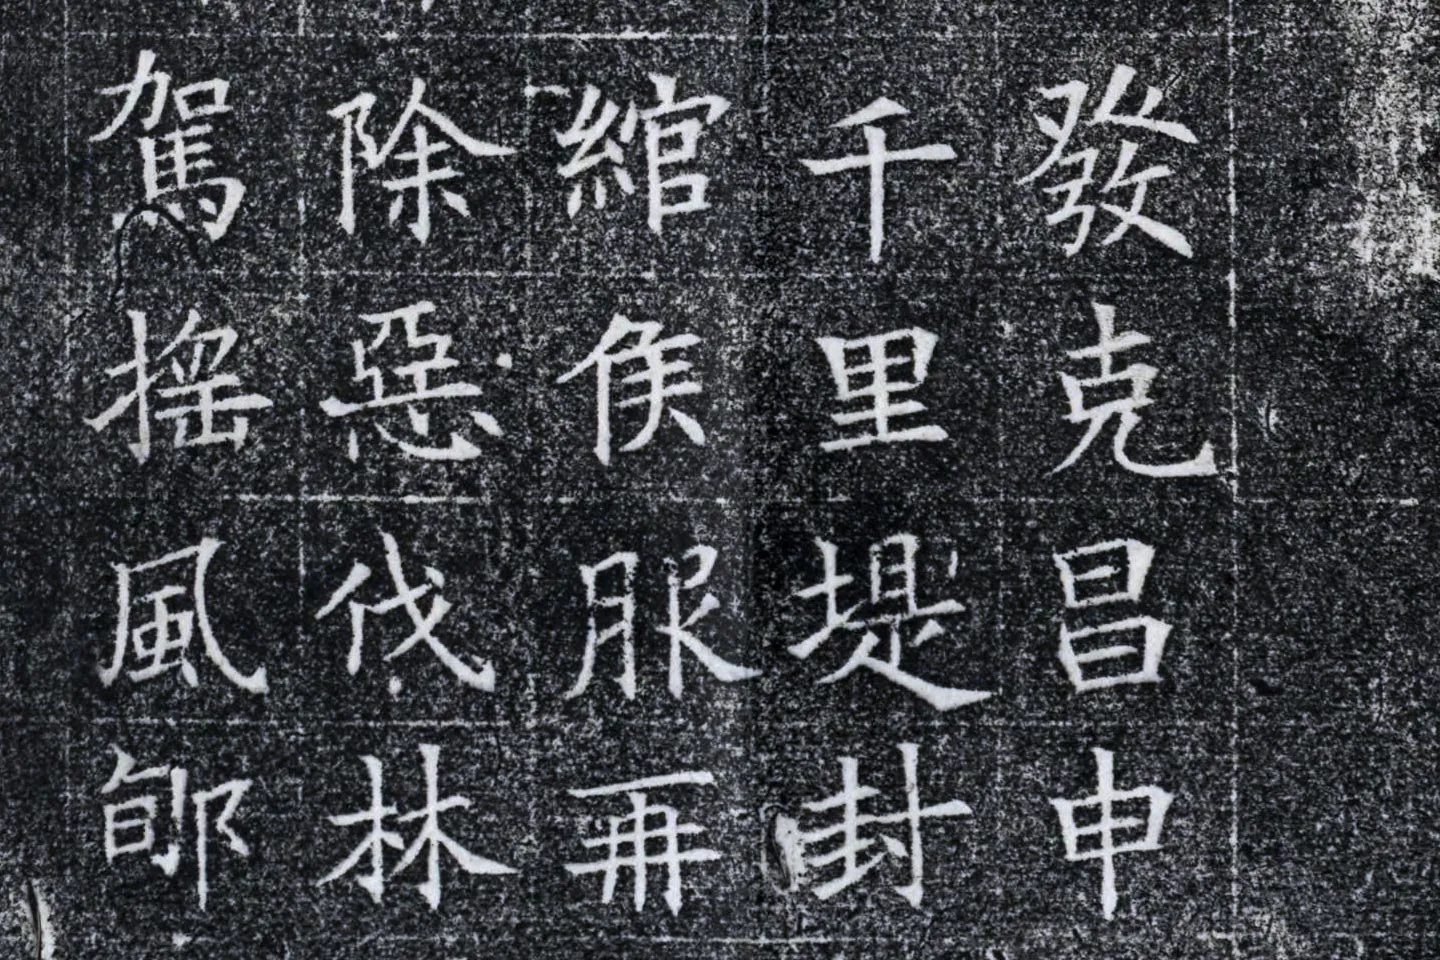 發克昌申
千里堤封
綰侯服再
除惡伐林
駕搖風郇